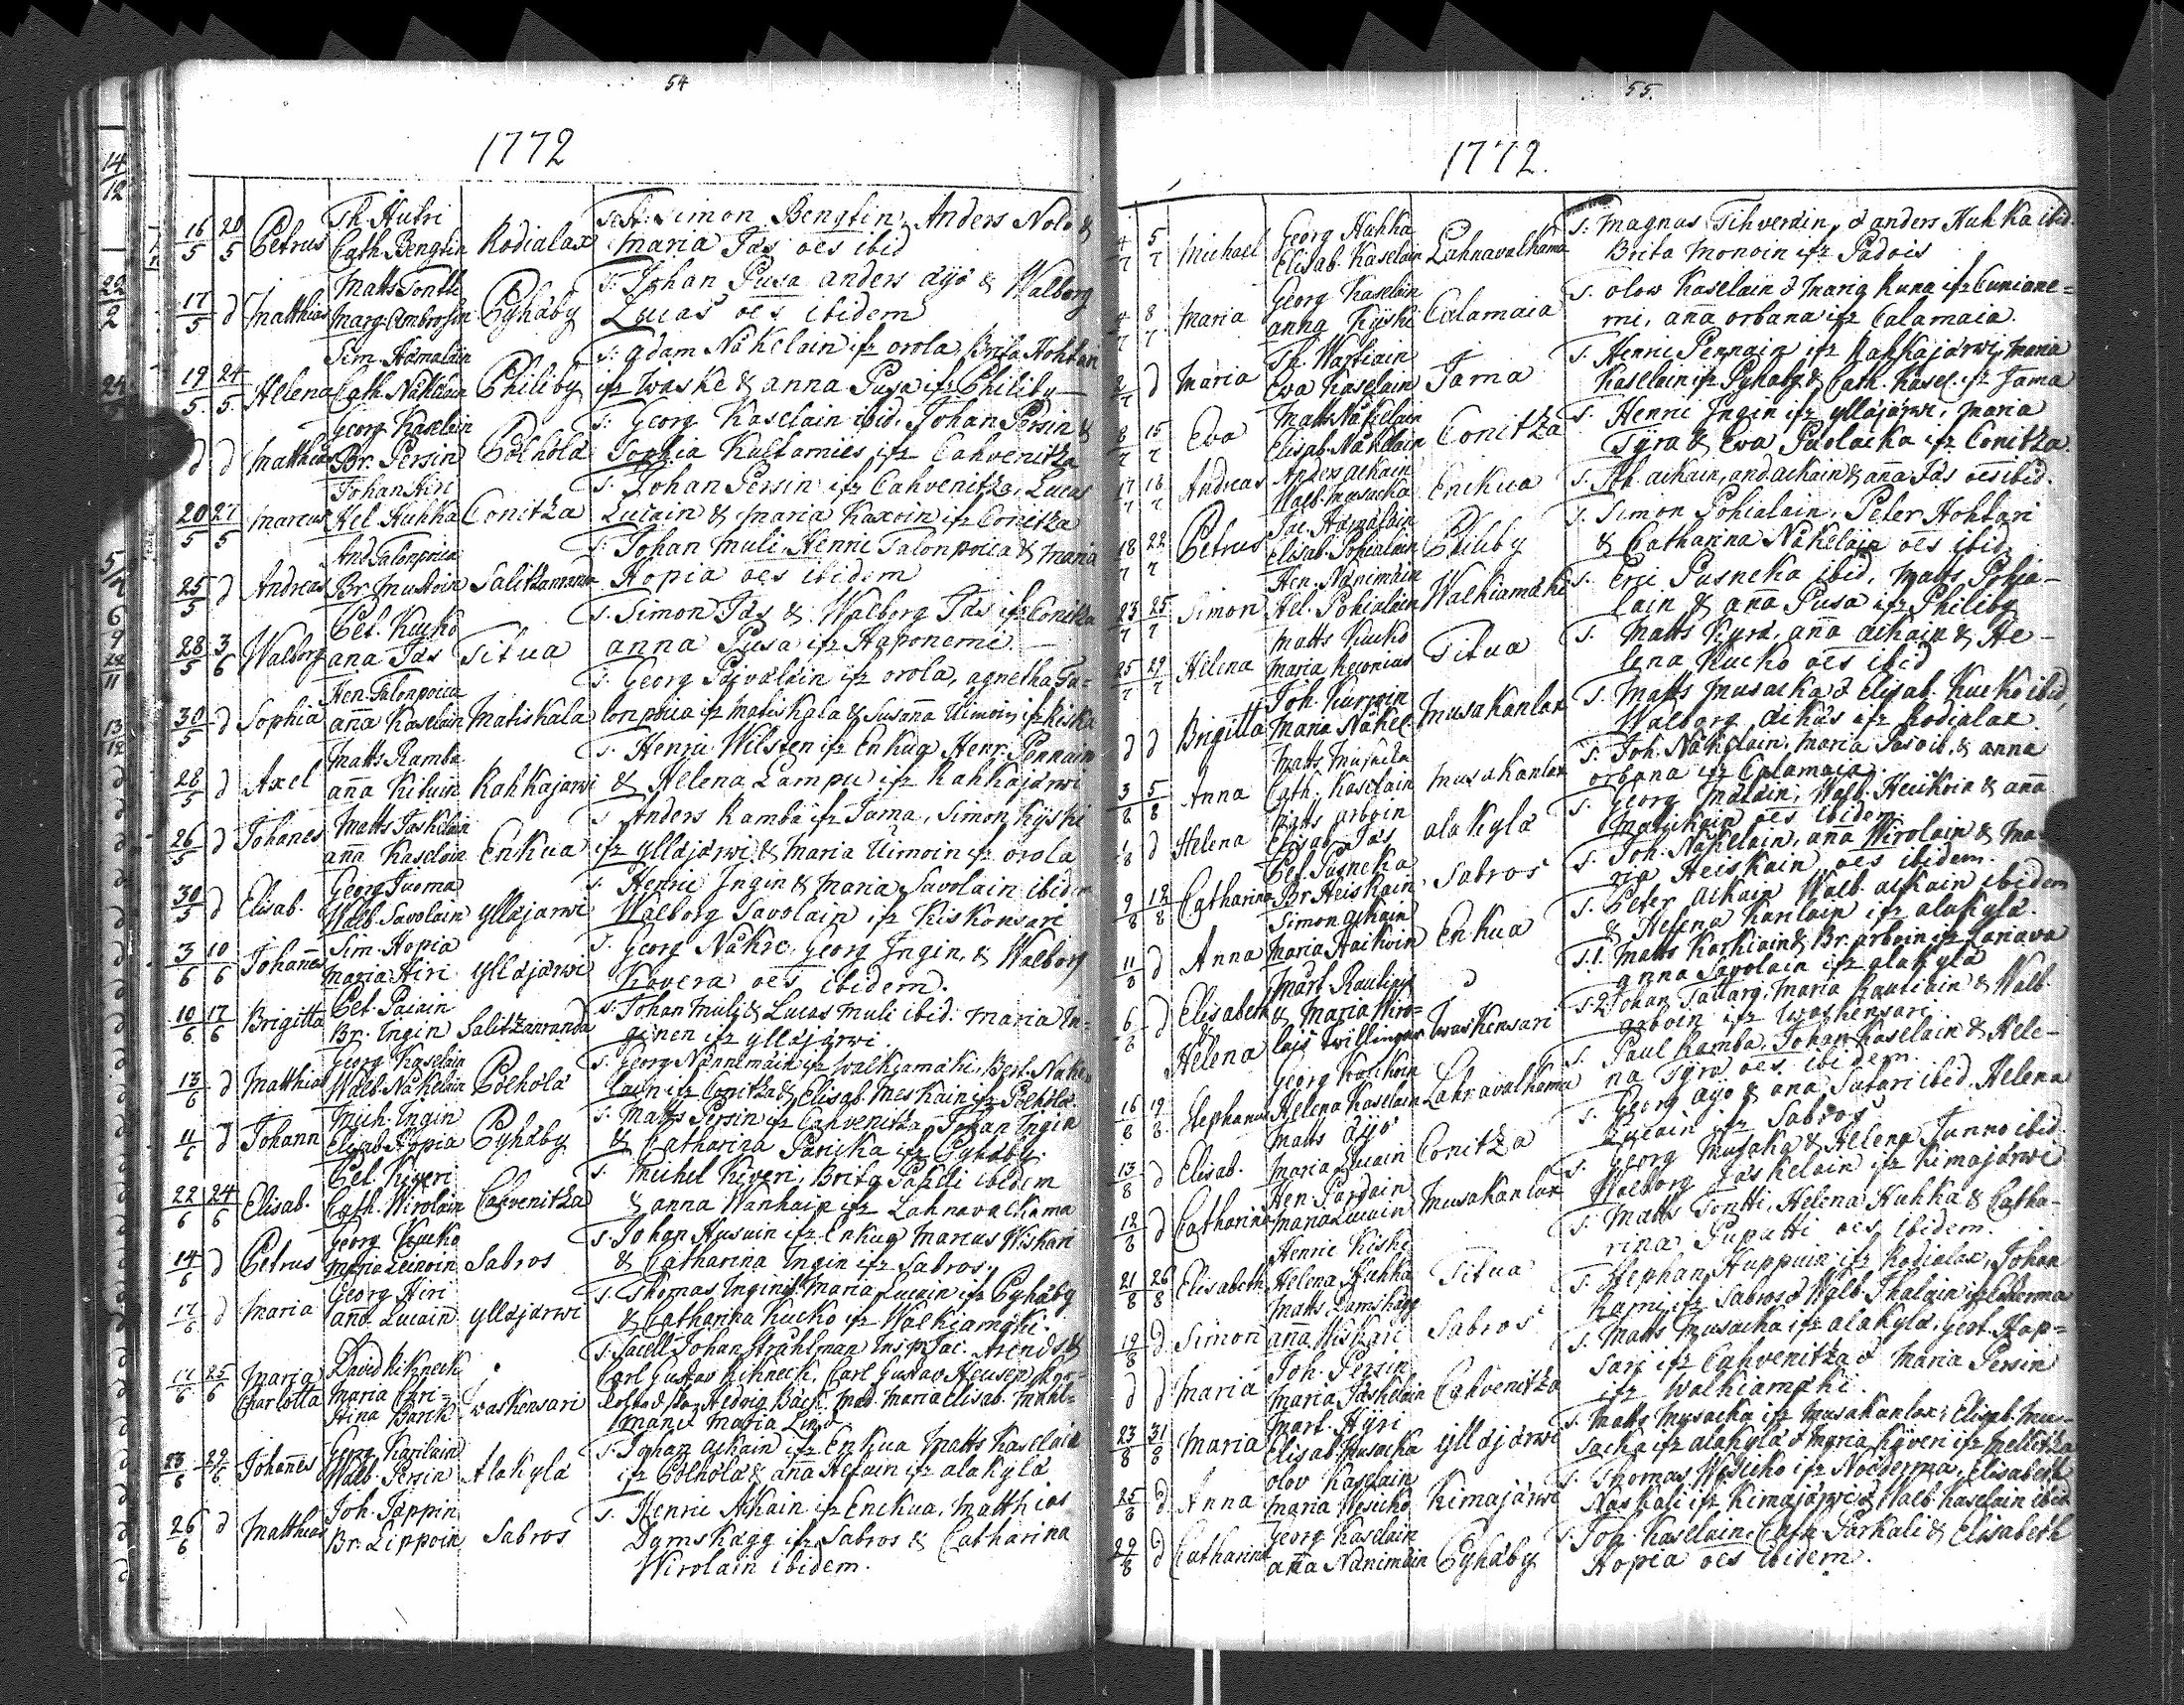 54
1772
16/5 20/5 Petrus Th. Hutri Cath. Bengtin Kodialax T: St: Simon Bengtin, Anders Nolo &
Maria Jäs oes ibid
17/5 d Matthias Matts Tontti Marg. Ambrosin Pyhäby T: Johan Pusa anders äyö & Walborg
Lucas oes ibidem
19/5 24/5 Helena Sim. Hämäläin Cath. Näkelain Philiby T: Adam Näkelain ifr orola Brita Hohtari
ifr waske & anna Pusa ifr Philiby
d d Matthias Georg Kaselain Br. Persin Pölhölä T: Georg Kaselain ibid. Johan Persin &
Sophia Kultamies ifr Cahvenitza
20/5 27/5 Marcus Johan Hiri Hel. Hukka Conitza T: Johan Persin ifr Cahvenitza, Lucas
Luciain & Maria Kaxoin ifr Conitza
25/5 d Andreas And. Talonpoica Br. Mustoin Salitzanranda T: Johan Muli, Henric Talonpoica & Maria
Hopia oes ibidem
28/5 3/6 Walborg Pet. Kucko ana Jäs Titua T. Simon Jäs & Walborg Jäs ifr Conitza
anna Pusa ifr Haponemi
30/5 d Sophia Hen. Talonpoica aña Kaselain Matiskala T: Georg Päiväläin ifr orola, agnetha Ta-
lonpoica ifr Matiskala & Susaña Uimoin ifr Kiska
28/5 d Axel Matts Ramba aña Kiluin Kahkajärwi T. Henric Wilsten ifr Enkua Henr. Pennain
& Helena Lampu ifr Kahkajärwi
26/5 d Johanes Matts Jaskelain aña Kaselain Enkua T Anders Ramba ifr Jama, Simon Kyski
ifr ylläjärwi & Maria Uimoin ifr orola
30/5 d Elisab. Georg Juoma Walb. Savolain ylläjärwi T. Henric Ingin & Maria Savolain ibidm
Walborg Savolain ifr Kiskonsari
3/6 10/6 Johañes Sim. Hopia Maria Hiri ylläjärwi T. Georg Näkre, Georg Ingin, & Walborg
Kavera oes ibidem.
10/6 17/6 Brigitta Pet. Paiain Br. Ingin Salitzanranda T: Johan Muli & Lucas Muli ibid. Maria In-
ginen ifr ylläjärwi.
13/6 d Matthias Georg Kaselain Walb. Näkelain Pölhölä T. Georg Nännimäin ifr Walkiamäki, Bert. Näke-
lain ifr Conitza & Elisab. Meskain ifr Pölhölä
11/6 d Johann Mich. Ingin Elisab. Hopia Pyhäby T. Matts Persin ifr Cahvenitza, Johan Ingin
& Catharina Paricka ifr Pyhäby
22/6 24/6 Elisab. Pet. Kiyeri Cath. Wirolain Cahvenitza T. Michel Kiveri, Brita Pakili ibidem
& anna Wanhain ifr Lahnavalkama
14/6 d Petrus Georg Kucko Maria Leinoin Sabros T. Johan Husuin ifr Enkua Marcus Wiskari
& Catharina Ingin ifr Sabros.
17/6 d Maria Georg Hiri ana. Lucain ylläjärwi T. Thomas Ingin & Maria Lucain ifr Pyhäby
& Catharina Kucko ifr Walkiamäki.
17/6 25/6 Maria Charlotta David Kihneck Maria Chri- stina Barck Waskensari T: Sacell. Johan Strahlman Insp. Jac. Arends &
Carl Gustav Kihneck, Carl Gustav Heusen
Hedwig Bäck. Mad. Maria Elisab. Mahl-
man & Maria Lind
23/6 24/6 Johañes Georg Karilain Walb. Persin Alakylä T: Johan aikain ifr Enkua Matts Kaselain
ifr Pölhölä & aña Hefain ifr alakylä
26/6 d Matthias Joh. Jappin Br. Lippoin Sabros T. Henric Aikain ifr Enckua, Matthias
Damskägg ifr Sabros & Catharina
Wirolain ibidem.
55.
1772.
4/7 5/7 Michael Georg Hukka Elisab. Kaselain Lahnavalkama T: Magnus Tihverain, & anders Hukka ibid.
Brita Monoin ifr Padois
4/7 8/7 Maria Georg Kaselain anna Kyski Calamaia T. olow Kaselain & Marg Kuna ifr Cuniane-
mi, aña orbana ifr Calamaia.
2/7 d Maria Th. Wastiain Ewa Kaselain Jama T. Henric Pennain ifr Kahkajärwi, Maria
Kaselain ifr Pyhäby & Cath. Kasel. ifr Jama
8/7 15/7 Eva Matts Näkelain Elisab. Näkelain Conitza T. Henric Ingin ifr ylläjärwi, Maria
Tyrä & Ewa Puolacka ifr Conitza.
17/7 18/7 Andreas Anders aikain Walb. Musacka Enckua T. Ath. aikain, and. aikain & aña Jäs oes ibid.
18/7 22/7 Petrus Jac. Hämäläin Elisab. Pohialain Philiby T. Simon Pohialain, Peter Hohtari
& Catharina Näkelain oes ibid
23/7 25/7 Simon Hen. Nänimäin Hel. Pohialain Walkiamäki T. Eric Pusneka ibid, Matts Pohia-
lain & aña Pusa ifr Philiby
25/7 29/7 Helena Matts Kucko Maria Reconius Titua T. Matts Kyrä, aña aikain & He-
lena Kucko oes ibid
d d Brigitta Joh. Kurpoin Maria Näkel. Musakanlax T. Matts Musacka & Elisab. Kucko ibid,
Walborg aikäs ifr Kodialax
3/8 5/8 Anna Matts Musacka Cath. Kaselain Musakanlax T. Joh. Näkelain, Maria Jäs ib. & anna
orbana ifr Calamaia.
1/8 d Helena Matts arboin Elisab. Jäs alakylä T. Georg Mäläin, Walb. Heickoin & aña
Matickain oes ibidem.
9/8 12/8 Catharina Pet. Pusneka Br. Heiskain Sabros T. Joh. Näkelain, aña Wirolain & Ma-
ria Heiskain oes ibidem.
11/8 d Anna Simon aikain Maria Haikoin Enkua T. Peter aikain Walb. aikain ibidem
& Helena Karilain ifr alakylä.
6/8 d Elisabeth & Helena Mart. Rautiain & Maria Wiro- lain twillingar Waskensari T.1. Matts Karkiain & Br. arboin ifr Kariava
anna Savolain ifr alakylä
T 2. Johan Tattary, Maria Rautiain & Walb.
arboin ifr Waskensari
16/8 19/8 Stephanus Georg Kaickoin Helena Kaselain Lahnavalkama T. Paul Ramba, Johan Kaselain & Hele-
na Tyrä oes ibidem.
13/8 d Elisab. Matts äyö Maria Lucain Conitza T. Georg äyö & ana Sutari ibid. Helena
Lucain ifr Sabros
12/8 d Catharina Hen. Pardain Maria Lucain Musakanlax T. Georg Musaka & Helena Junno ibid.
Walborg Jäskeläin ifr Kimajärwi
21/8 26/8 Elisabeth Henric Kiski Helena Hukka Titua T. Matts Tontti, Helena Hukka & Catha-
rina Puputti oes ibidem.
19/8 d Simon Matts Damskägg aña Wiskari Sabros T. Stephan Huppuin ifr Kodialax, Johan
Rami ifr Sabros & Walb. Ihalain ifr
d d Maria Joh. Persin Maria Jäskelain Cahvenitza T. Matts Musacka ifr alakylä, Geor. Hap-
sari ifr Cahvenitza & Maria Persin
ifr Walkiamäki.
23/8 31/8 Maria Mart. Hyri Elisab. Musacka ylläjärwi T. Matts Musacka ifr Musakanlax, Elisab. Mu-
sacka ifr alakylä & Maria Kyveri ifr Mellitza
25/8 d Anna olov Kaselain Maria Wesicko Kimajärwi T. Thomas Wesicko ifr Noiderma, Elisabeth
Naskali ifr Kimajärwi & Walb. Kaselain ibid
29/8 d Catharina Georg Kaselain aña Nänimäin Pyhäby T. Joh. Kaselain, Cath. Parkali & Elisabeth
Hopia oes ibidem.